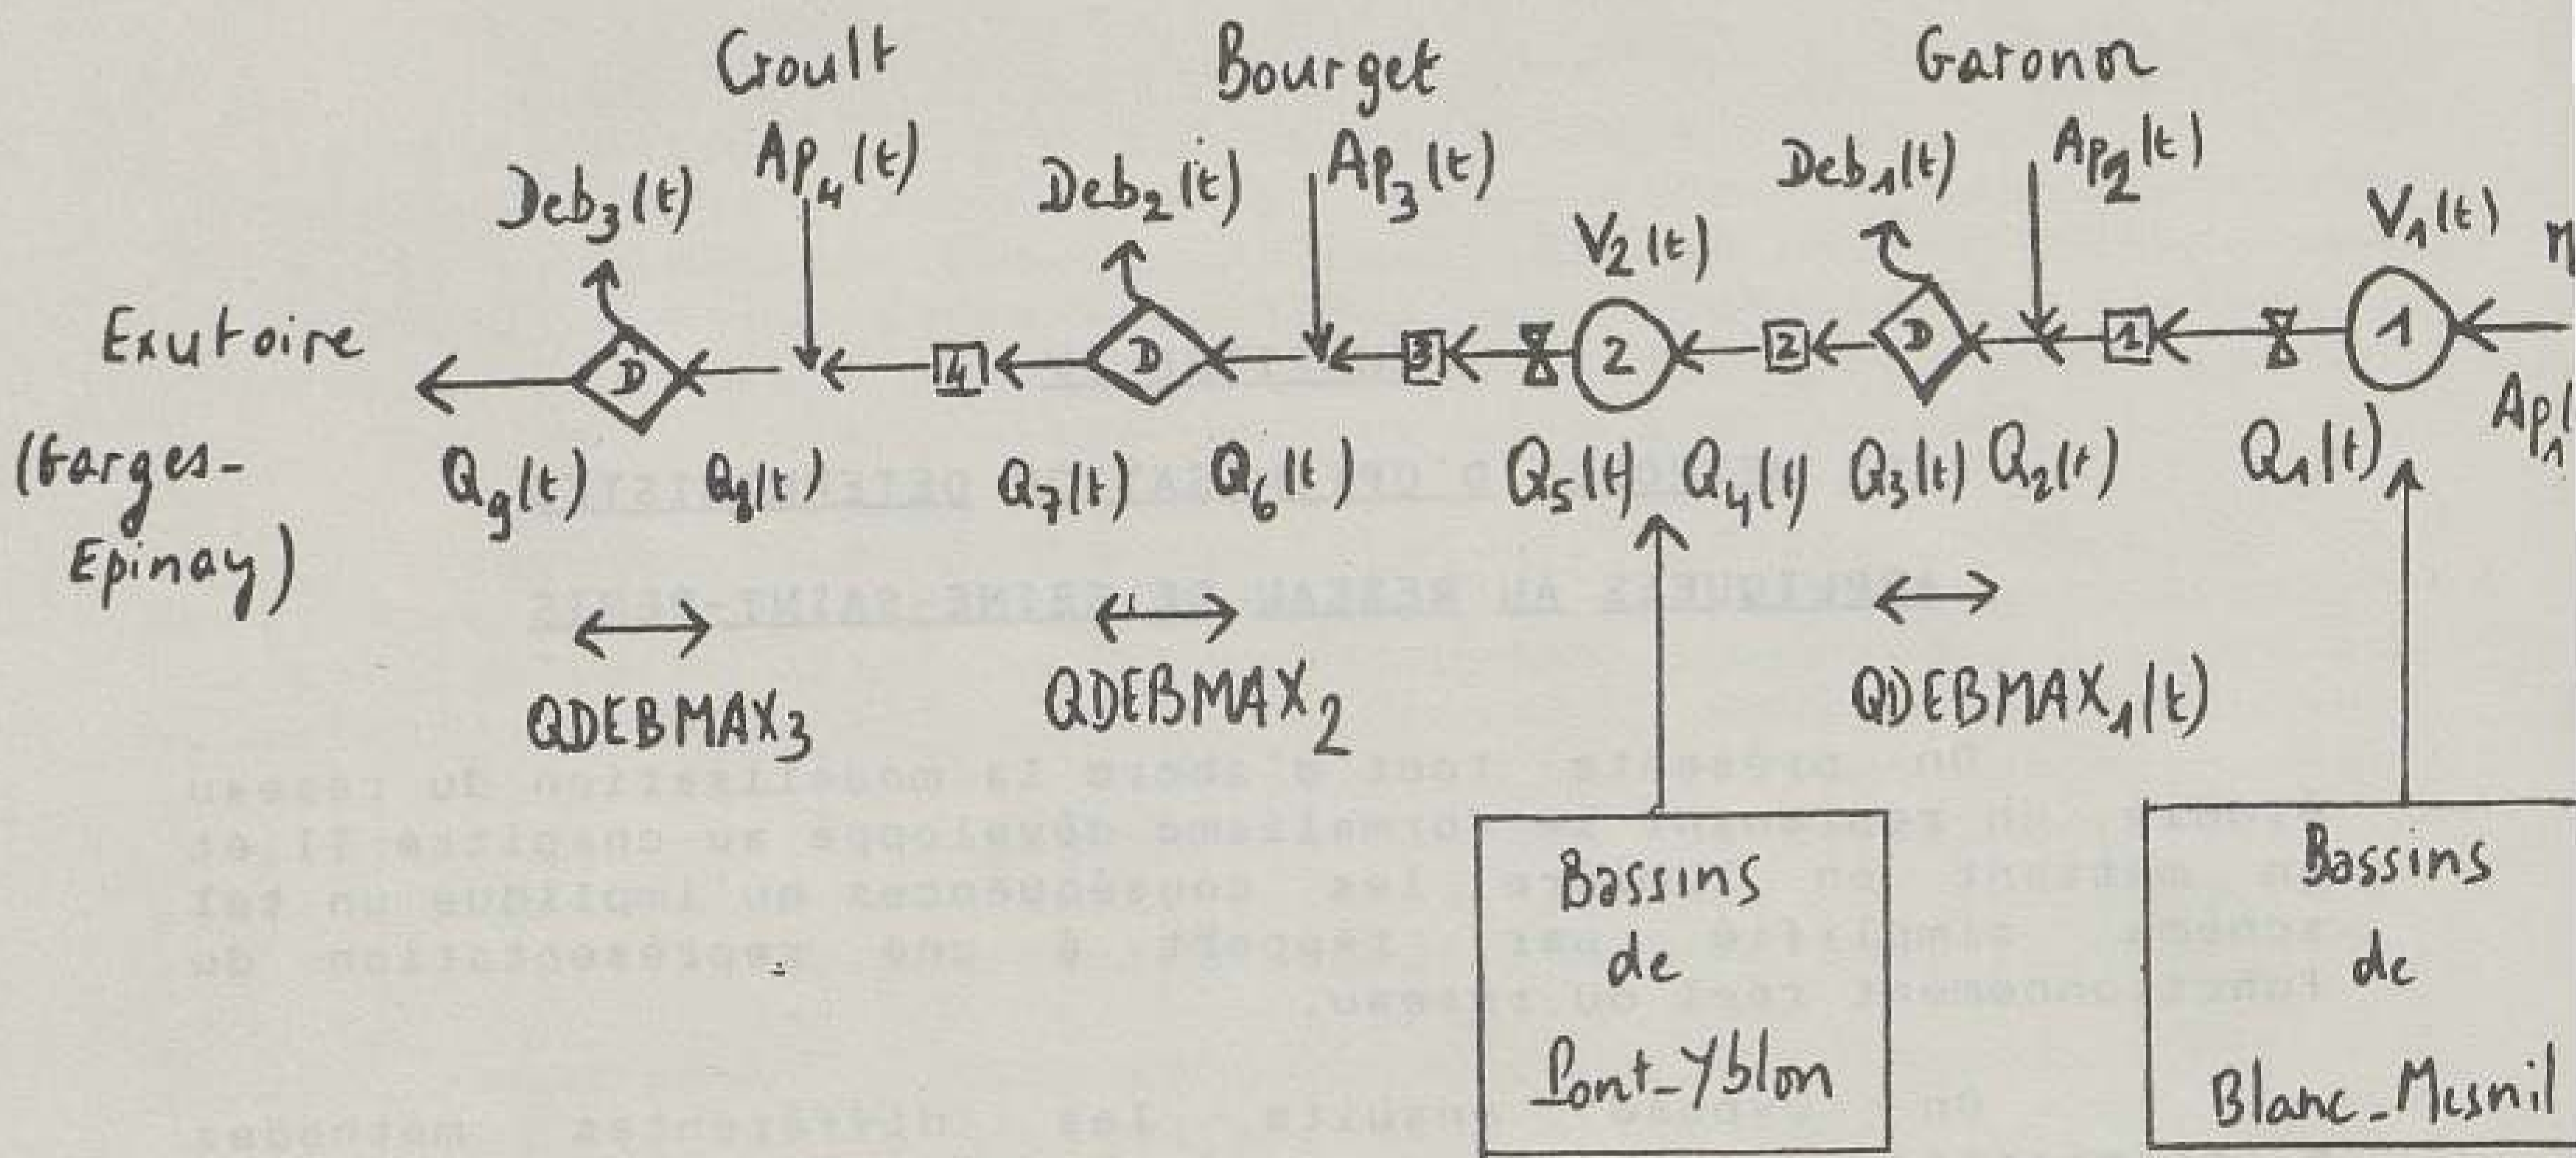 Croult
Bourget
Garonor
Deb₃(t)
Ap₄(t)
Deb₂(t)
Ap₃(t)
Deb₁(t)
Ap₂(t)
V₂(t)
V₁(t)
Exutoire
(Garges-
Epinay)
D
4
D
3
2
2
D
1
1
Ap₁(
Q₉(t)
Q₈(t)
Q₇(t)
Q₆(t)
Q₅(t)
Q₄(t)
Q₃(t)
Q₂(t)
Q₁(t)
QDEBMAX₃
QDEBMAX₂
QDEBMAX₁(t)
Bassins
de
Pont-Yblon
Bassins
de
Blanc-Mesnil